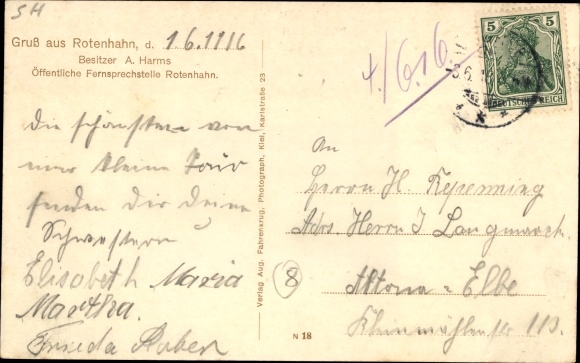 SH
Gruß aus Rotenhahn, d. 1.6.1916
Besitzer A. Harms
Öffentliche Fernsprechstelle Rotenhahn.
die schönsten von
einer kleine Tour
senden dir deine
Schwestern
Elisabeth Maria
Martha.
Frieda
Verlag Aug. Fahrenkrug, Photograph, Kiel, Karlstraße 23
4/6.16
5 5
DEUTSCHES REICH
An
Herrn H. Kepenning
Adrs. Herrn J. Langmaack
Altona - Elbe
Kleinmühlenstr 113.
8
N 18